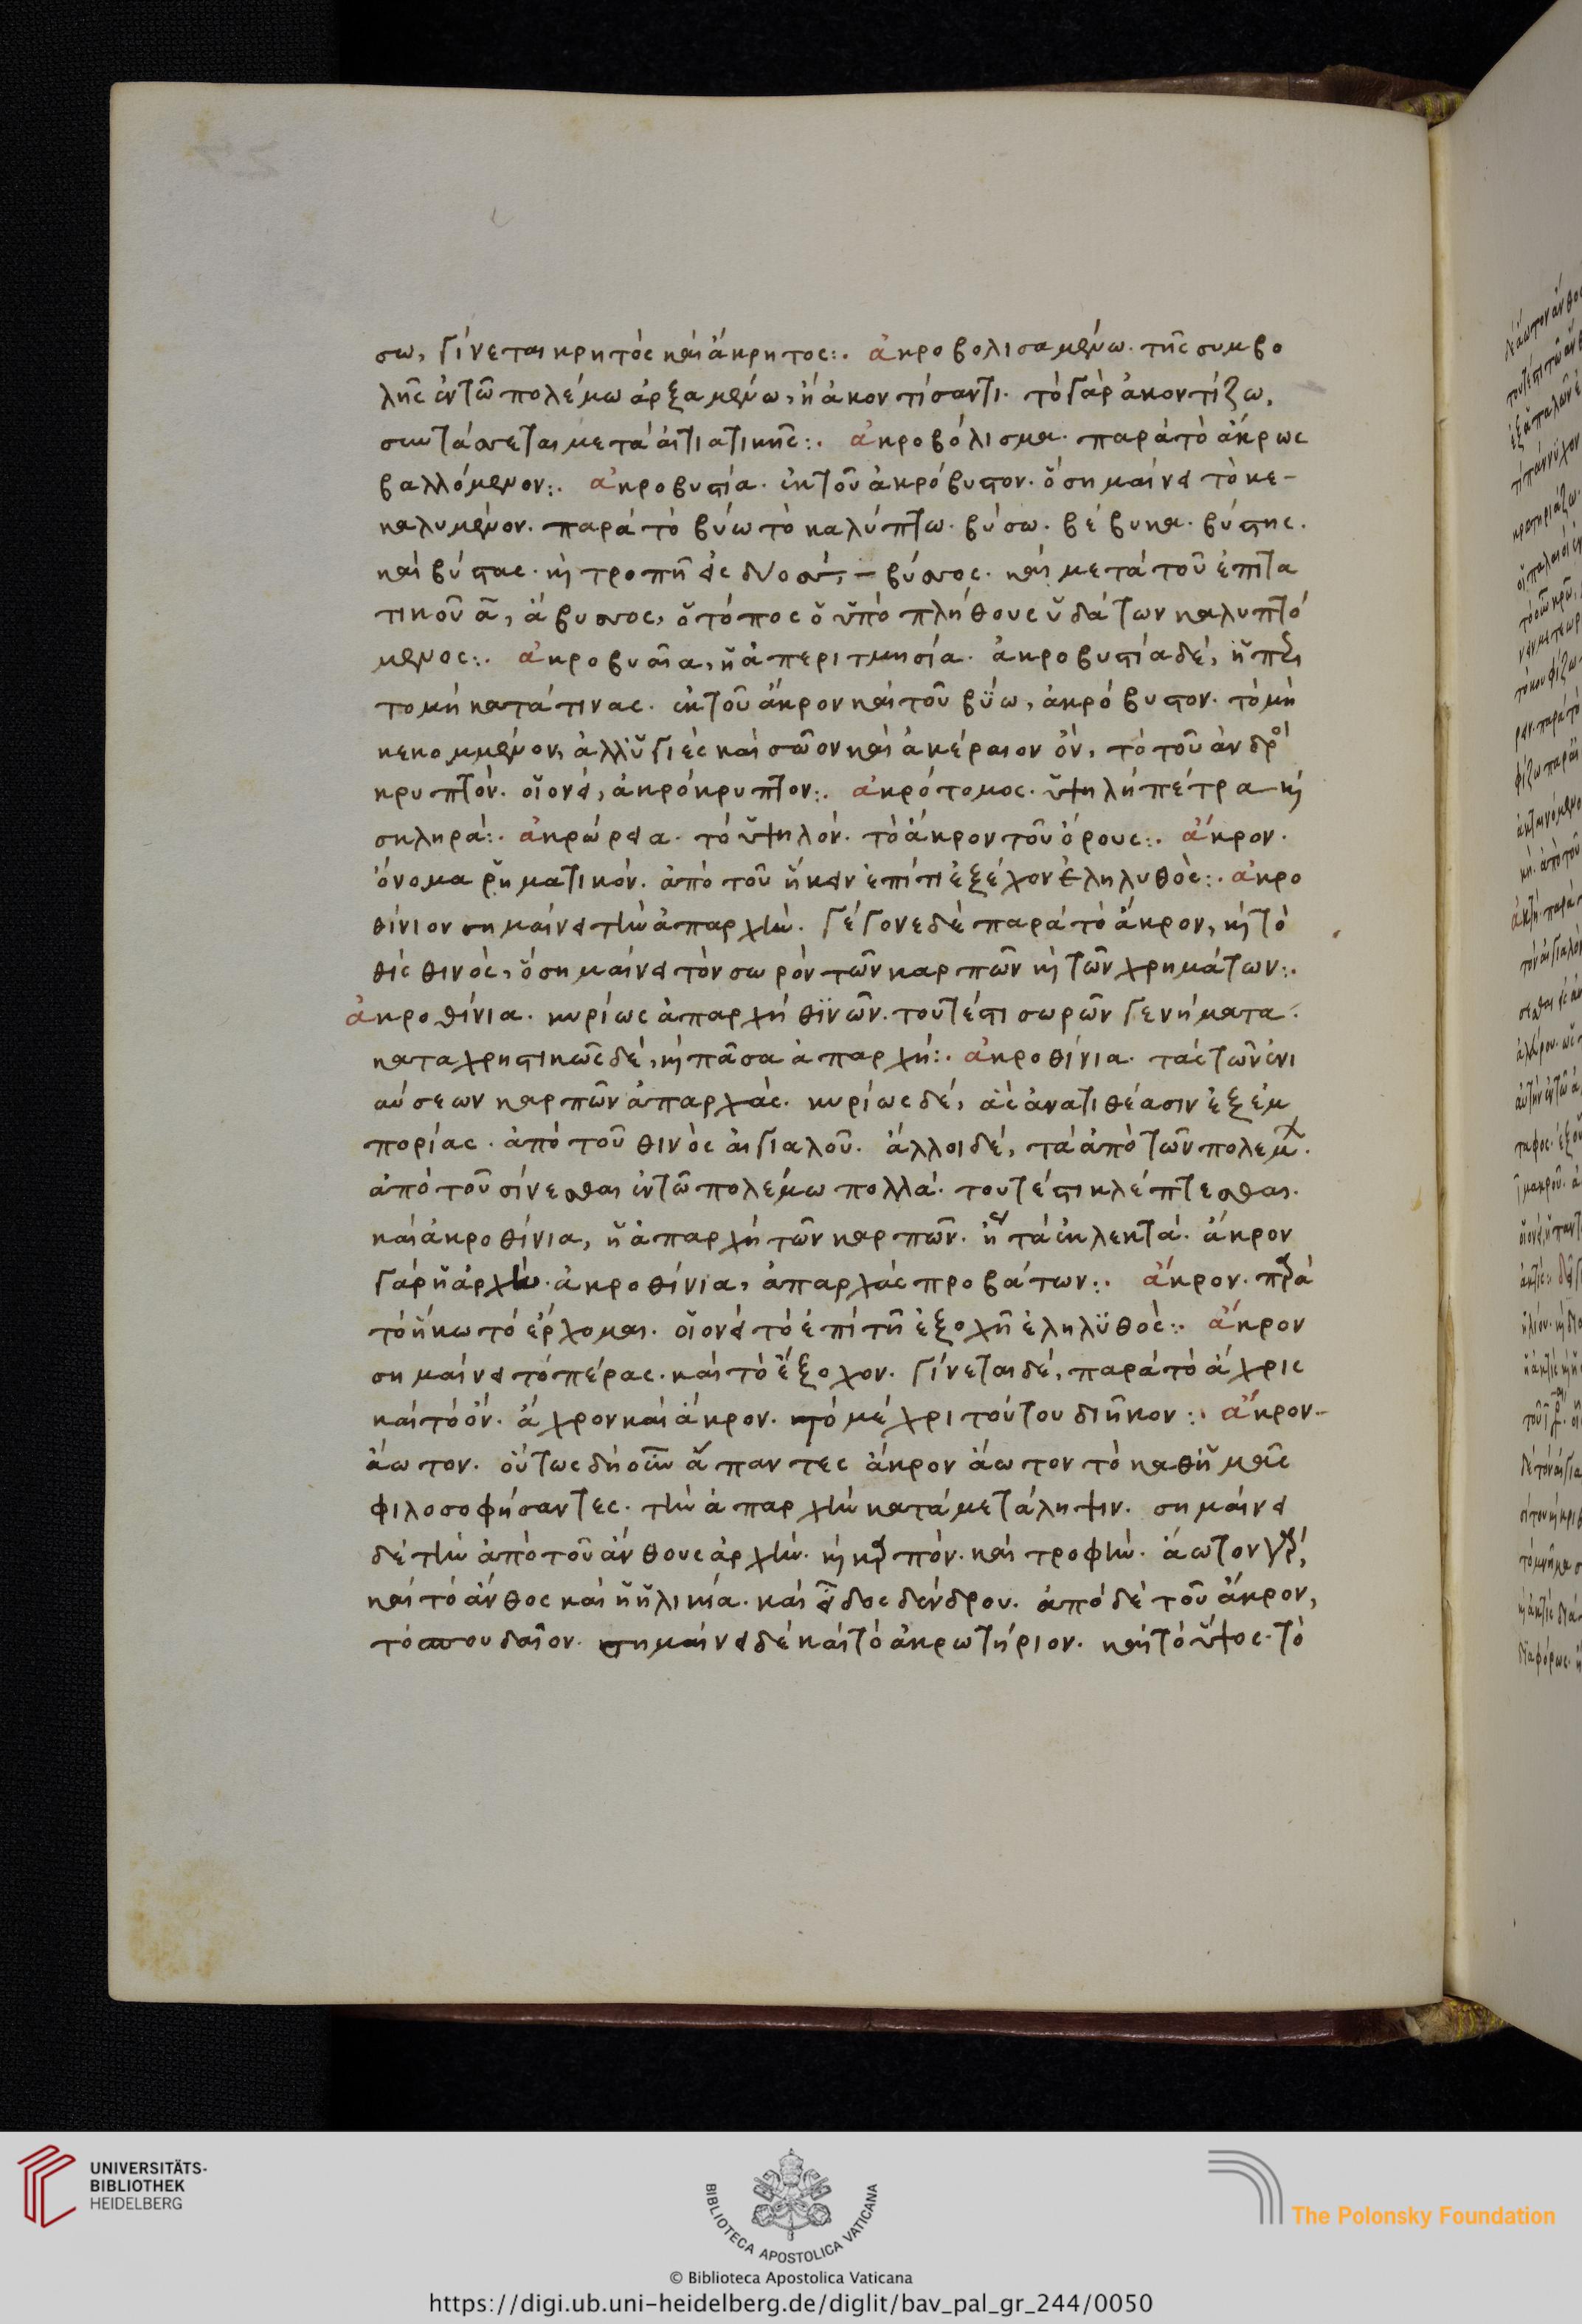 σω, γίνεται κρητὸς καὶ ἄκρητος:. ἀκροβολισαμένω. τῆς συμβο
λῆς ἐν τῶ πολέμω ἀρξαμένω, ἢ ἀκοντίσαντι. τὸ γὰρ ἀκοντίζω,
συντάσσεται μετὰ αἰτιατικῆς:. ἀκροβόλισμα. παρὰ τὸ ἄκρως
βαλλόμενον:. ἀκροβυστία. ἐκ τοῦ ἀκρόβυστον. ὃ σημαίνει τὸ κε-
καλυμμένον. παρὰ τὸ βύω τὸ καλύπτω. βύσω. βέβυκα. βύστης.
καὶ βύστας. καὶ τροπῆ εἰς δύο σσ, βύσσος. καὶ μετὰ τοῦ ἐπιτα
τικοῦ α, ἄβυσσος, ὁ τόπος ὁ ὑπὸ πλήθους ὑδάτων καλυπτό
μενος:. ἀκροβυστία, ἡ ἀπεριτμησία. ἀκροβυστία δέ, ἡ περι
τομὴ κατά τινας. ἐκ τοῦ ἄκρον καὶ τοῦ βύω, ἀκρόβυστον. τὸ μὴ
κεκομμένον, ἀλλ' ὑγιὲς καὶ σῶον καὶ ἀκέραιον ὄν, τὸ τοῦ ἀνδρὸ
κρυπτόν. οἱονεὶ, ἀκρόκρυπτον:. ἀκρότομος. ὑψηλὴ πέτρα καὶ
σκληρά:. ἀκρώρεια. τὸ ὑψηλόν. τὸ ἄκρον τοῦ ὄρους:. ἄκρον.
ὄνομα ῥηματικόν. ἀπὸ τοῦ ἥκειν ἐπί τι ἐξέχον ἐληλυθὸς:. ἀκρο
θίνιον σημαίνει τὴν ἀπαρχήν. γέγονε δὲ παρὰ τὸ ἄκρον, καὶ τὸ
θὶς θινὸς, ὃ σημαίνει τὸν σωρὸν τῶν καρπῶν καὶ τῶν χρημάτων:.
ἀκροθίνια. κυρίως ἀπαρχὴ θινῶν. τουτέστι σωρῶν γενήματα.
καταχρηστικῶς δέ, καὶ πᾶσα ἀπαρχή:. ἀκροθίνια. τὰς τῶν ἐνι
αύσεων καρπῶν ἀπαρχάς. κυρίως δέ, ἃς ἀνατιθέασιν ἐξ ἐμ
πορίας. ἀπὸ τοῦ θινὸς αἰγιαλοῦ. ἄλλοι δέ, τὰ ἀπὸ τῶν πολεμ.
ἀπὸ τοῦ σίνεσθαι ἐν τῶ πολέμω πολλά. τουτέστι κλέπτεσθαι.
καὶ ἀκροθίνια, ἡ ἀπαρχὴ τῶν καρπῶν. ἢ τὰ ἐκλεκτά. ἄκρον
γὰρ ἡ ἀρχὴν. ἀκροθίνια, ἀπαρχὰς προβάτων:. ἄκρον. παρὰ
τὸ ἥκω τὸ ἔρχομαι. οἱονεὶ τὸ ἐπὶ τῆ ἐξοχῆ ἐληλυθὸς:. ἄκρον
σημαίνει τὸ πέρας. καὶ τὸ ἔξοχον. γίνεται δέ, παρὰ τὸ ἄχρις
καὶ τὸ ὄν. ἄχρον καὶ ἄκρον. τὸ μέχρι τούτου διῆκον:. ἄκρον.
ἄωτον. οὕτως δὴ οὖν ἅπαντες ἄκρον ἄωτον τὸ καθ' ἡμᾶς
φιλοσοφήσαντες. τὴν ἀπαρχὴν κατὰ μετάληψιν. σημαίνει
δὲ τὴν ἀπὸ τοῦ ἄνθους ἀρχήν. καὶ καρπόν. καὶ τροφήν. ἄωτον γὰρ,
καὶ τὸ ἄνθος καὶ ἡ ἡλικία. καὶ εἶδος δένδρου. ἀπὸ δὲ τοῦ ἄκρον,
τὸ σπουδαῖον. σημαίνει δὲ καὶ τὸ ἀκρωτήριον. καὶ τὸ ὕψος. τὸ
UNIVERSITÄTS-
BIBLIOTHEK
HEIDELBERG
BIBLIOTECA APOSTOLICA VATICANA
The Polonsky Foundation
© Biblioteca Apostolica Vaticana
https://digi.ub.uni-heidelberg.de/diglit/bav_pal_gr_244/0050